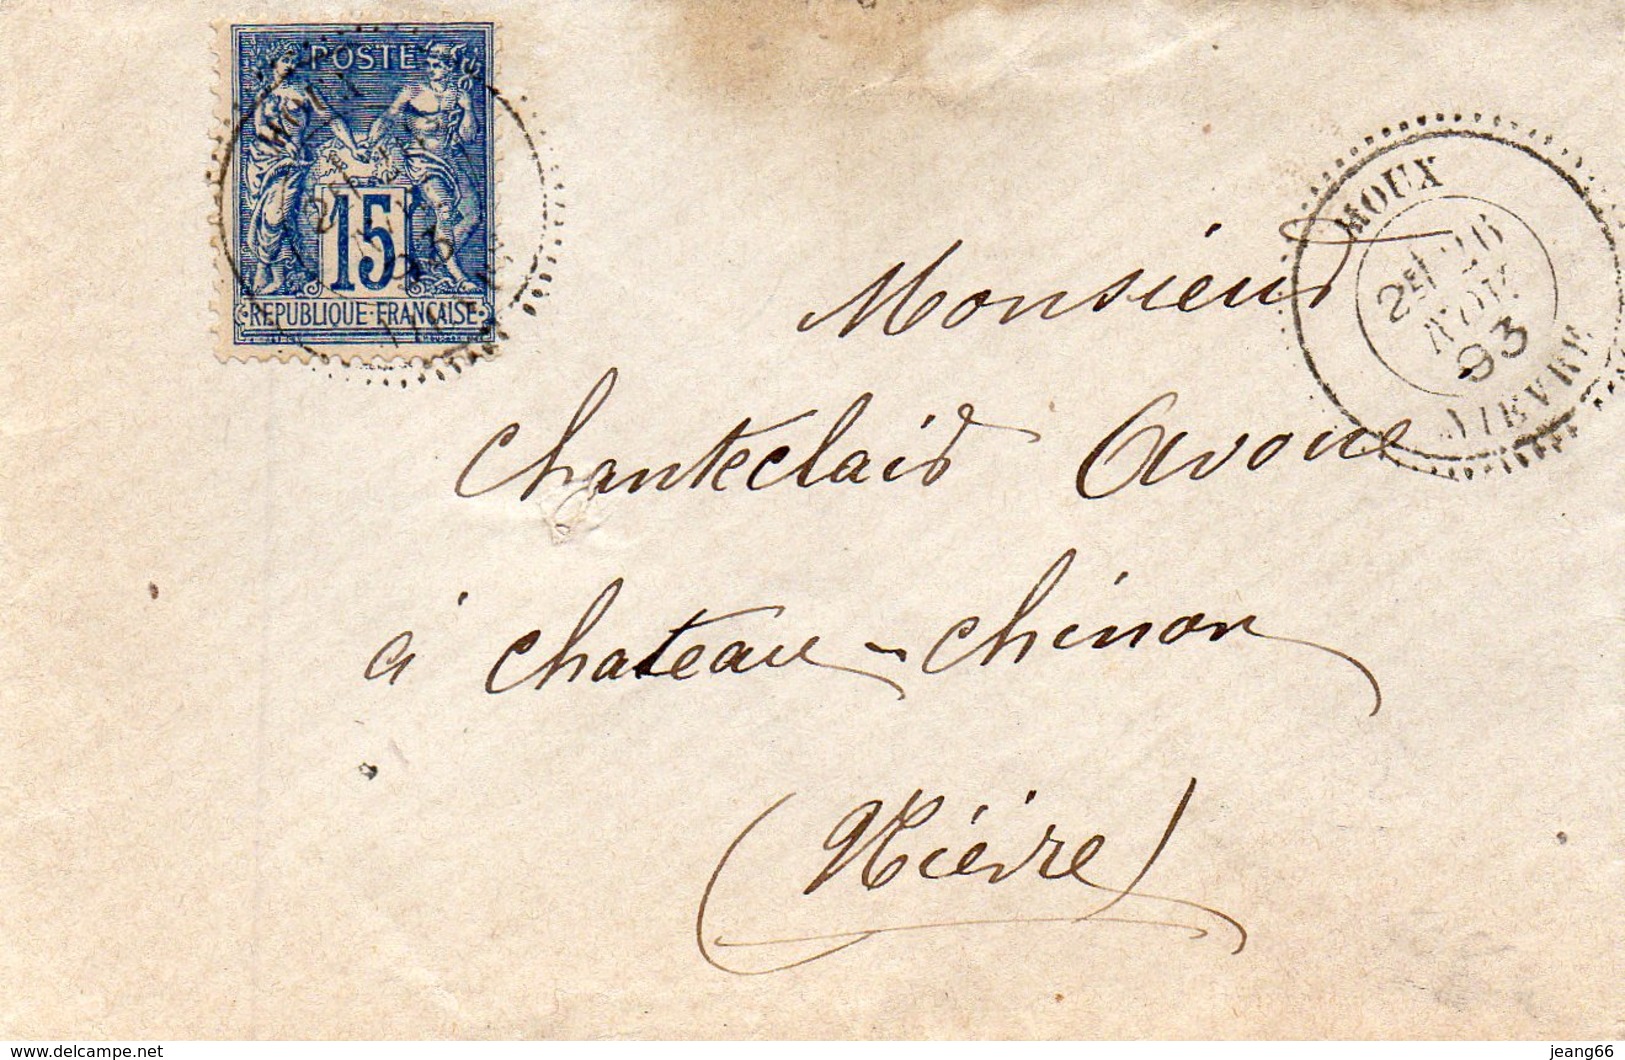 POSTE
15
REPUBLIQUE FRANÇAISE
MOUX
2E 26
AOUT
93
NIEVRE
Monsieur
Chanteclair Avoué
à Chateau-Chinon
(Nièvre)
www.delcampe.net
jeang66